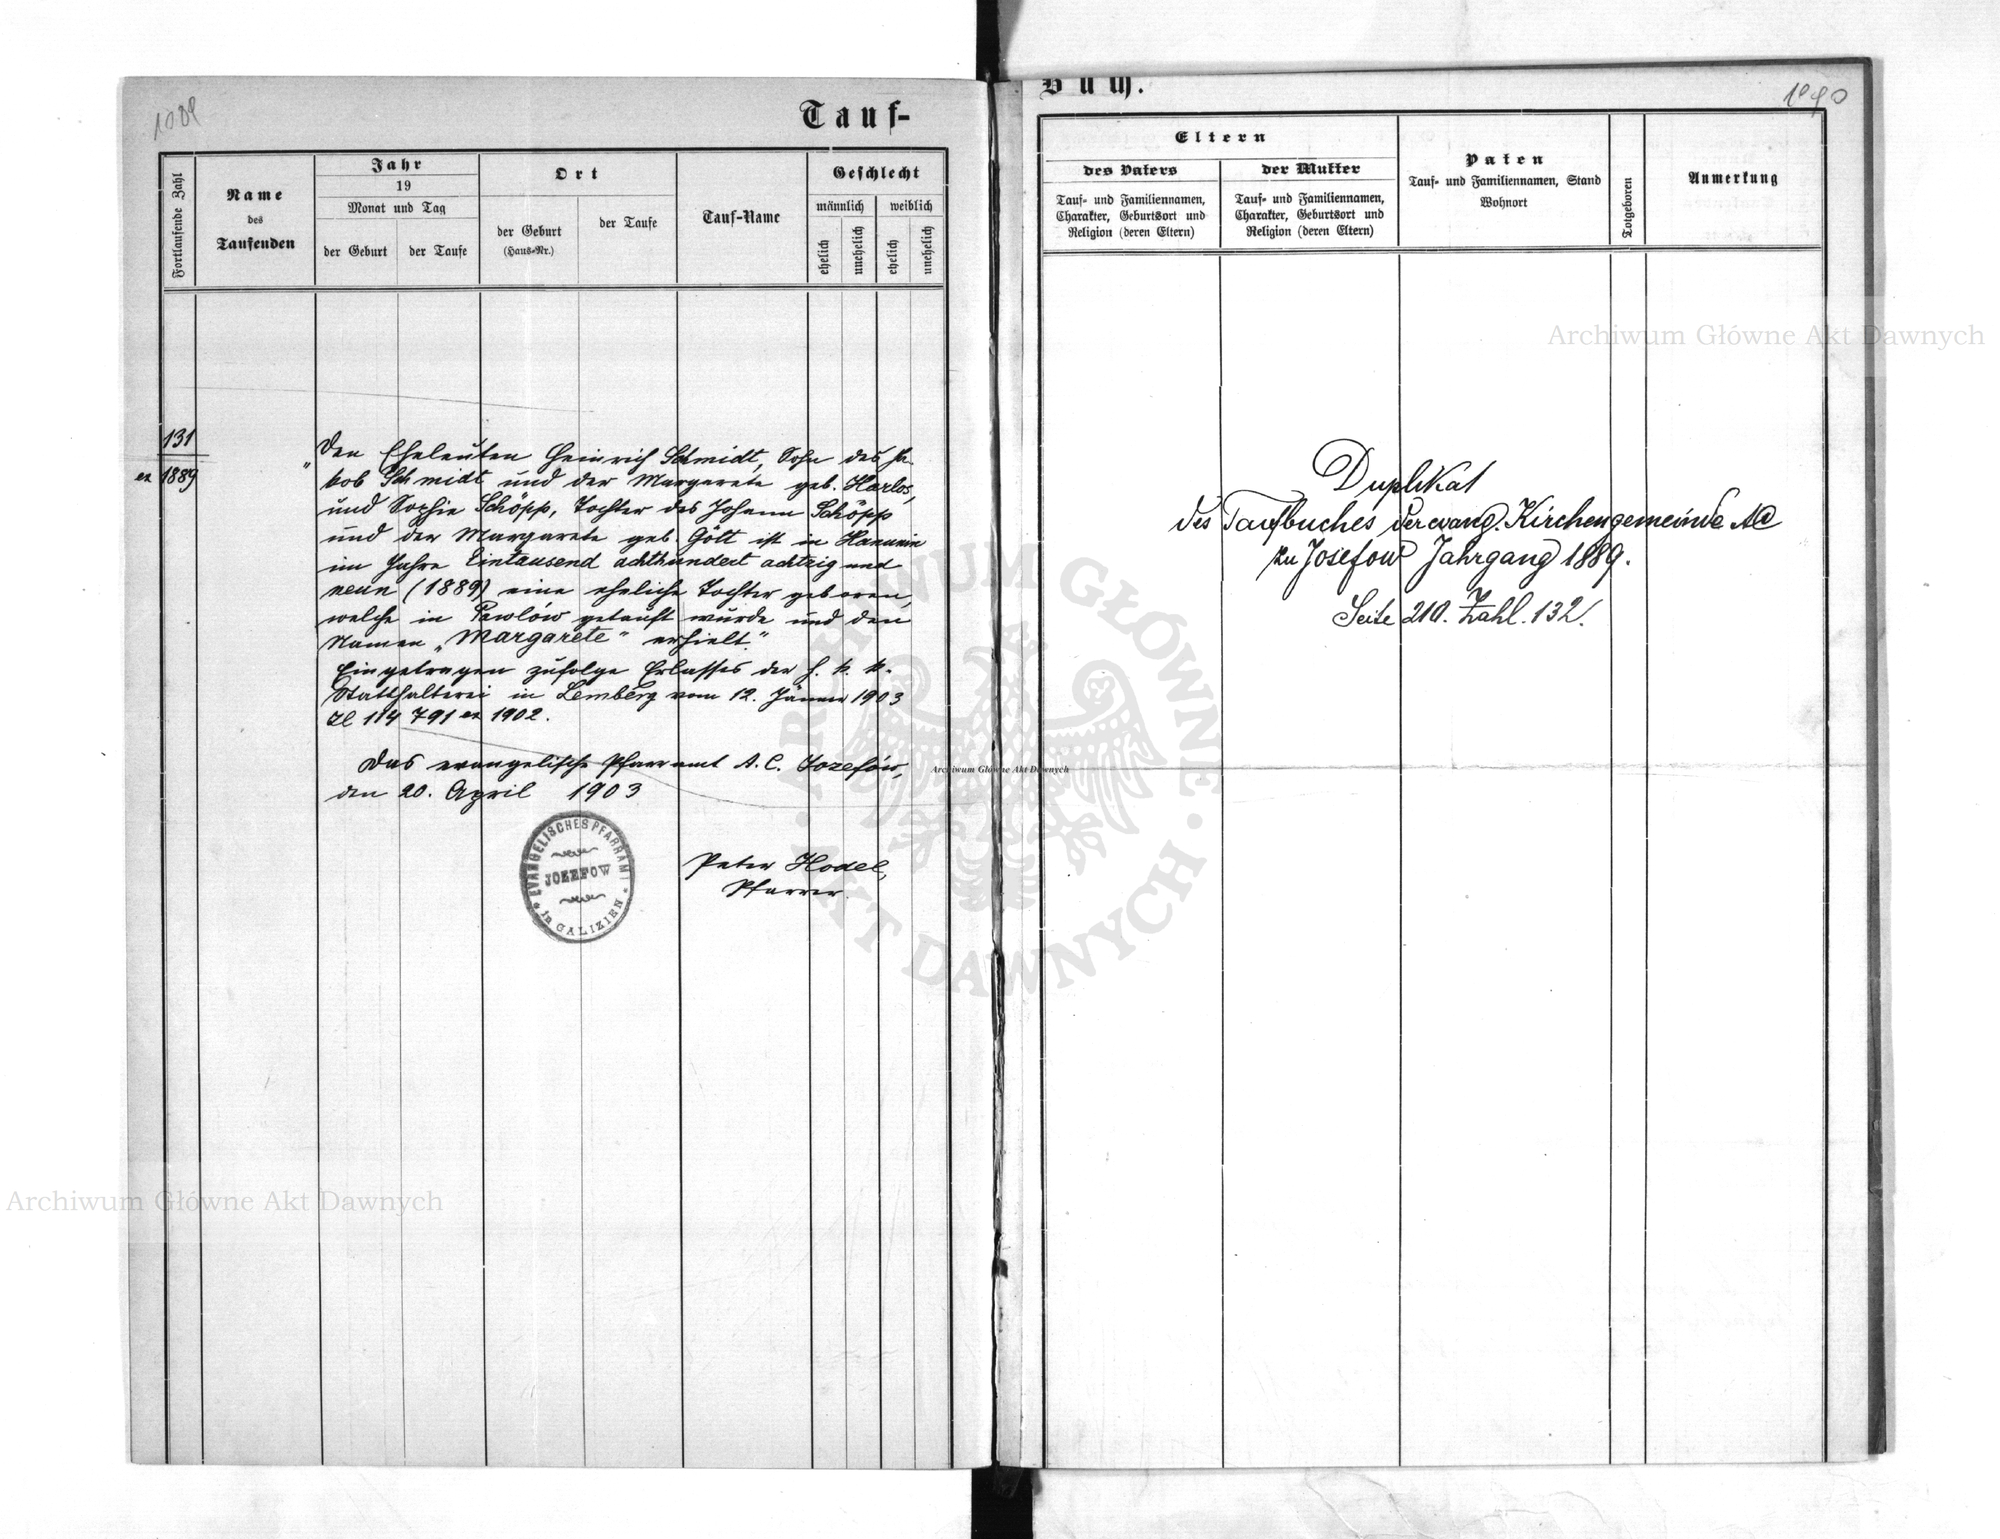 1089
Tauf-
Fortlaufende Zahl
Name
des
Taufenden
Jahr
19
Monat und Tag
der Geburt
der Taufe
Ort
der Geburt
(Haus-Nr.)
der Taufe
Tauf-Name
Geschlecht
männlich
weiblich
ehelich
unehelich
ehelich
unehelich
131
ex 1889
"Den Eheleuten Heinrich Schmidt, Sohn des Ja-
kob Schmidt und der Margarete geb. Harlos,
und Sophie Schöpp, Tochter des Johann Schöpp
und der Margarete geb. Gött ist in Hanunin
im Jahre Eintausend achthundert achtzig und
neun (1889) eine eheliche Tochter geboren,
welche in Pawlów getauft wurde und den
Namen „Margarete" erhielt."
Eingetragen zufolge Erlasses der h. k. k.
Statthalterei in Lemberg vom 12. Jänner 1903
Zl 114 791 ex 1902.
Das evangelische Pfarramt A. C. Jozefów,
den 20. April 1903
EVANGELISCHES PFARRAMT
JOZEFOW
in GALIZIEN
Peter Hodel,
Pfarrer.
Buch.
1090
Eltern
des Vaters
Tauf- und Familiennamen,
Charakter, Geburtsort und
Religion (deren Eltern)
der Mutter
Tauf- und Familiennamen,
Charakter, Geburtsort und
Religion (deren Eltern)
Paten
Tauf- und Familiennamen, Stand
Wohnort
Totgeboren
Anmerkung
Duplikat
des Taufbuches der evang. Kirchengemeinde AC
zu Josefow Jahrgang 1889.
Seite 210. Zahl. 132.
Archiwum Główne Akt Dawnych
Archiwum Główne Akt Dawnych
Archiwum Główne Akt Dawnych
ARCHIWUM GŁÓWNE · AKT DAWNYCH ·